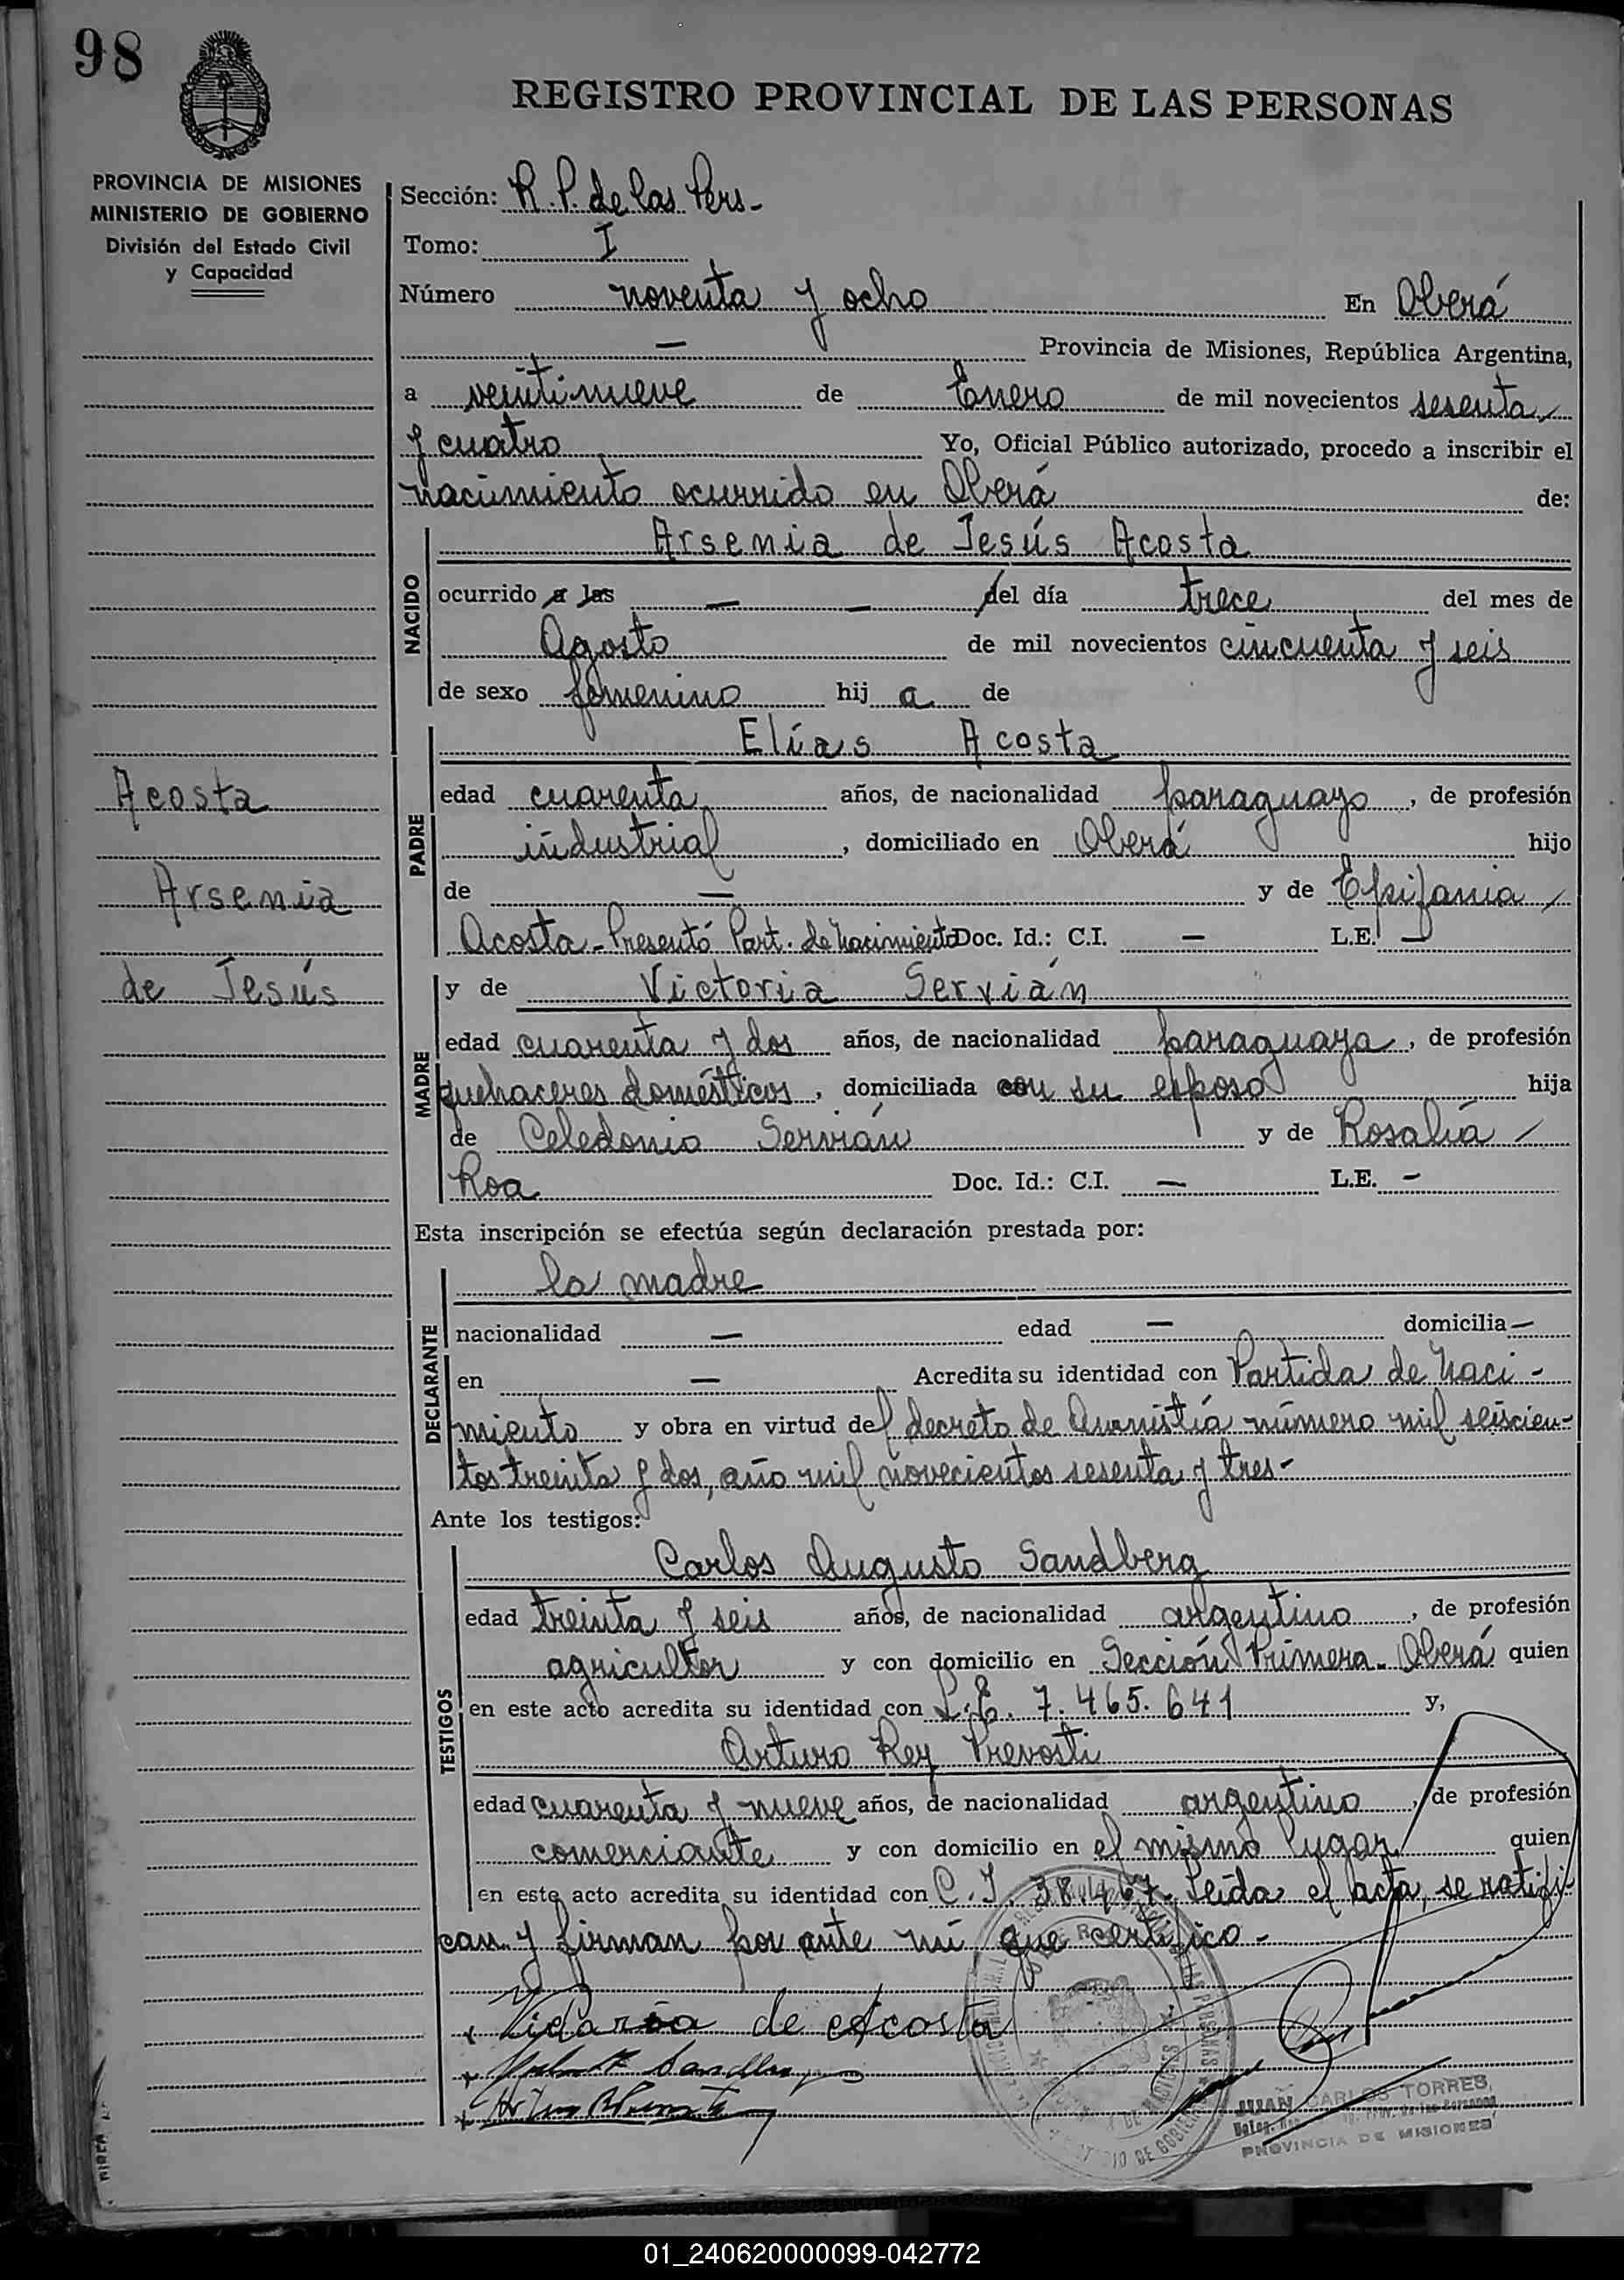 98
REGISTRO PROVINCIAL DE LAS PERSONAS
PROVINCIA DE MISIONES
MINISTERIO DE GOBIERNO
División del Estado Civil
y Capacidad
Acosta
Arsenia
de Jesús
Sección: R. P. de las Pers-
Tomo: I
Número noventa y ocho En Oberá
— Provincia de Misiones, República Argentina,
a veintinueve de Enero de mil novecientos sesenta
y cuatro Yo, Oficial Público autorizado, procedo a inscribir el
nacimiento ocurrido en Oberá de:
NACIDO
Arsenia de Jesús Acosta
ocurrido a las — — del día trece del mes de
Agosto de mil novecientos cincuenta y seis
de sexo femenino hij a de
PADRE
Elías Acosta
edad cuarenta años, de nacionalidad paraguayo, de profesión
industrial, domiciliado en Oberá hijo
de — y de Epifania
Acosta-Presentó Part. de nacimiento Doc. Id.: C.I. — L.E. —
MADRE
y de Victoria Servián
edad cuarenta y dos años, de nacionalidad paraguaya, de profesión
quehaceres domésticos, domiciliada con su esposo hija
de Celedonio Servián y de Rosalía
Roa Doc. Id.: C.I. — L.E. —
Esta inscripción se efectúa según declaración prestada por:
DECLARANTE
la madre
nacionalidad — edad — domicilia —
en — Acredita su identidad con Partida de Naci-
miento y obra en virtud del decreto de Amnistía número mil seiscien-
tos treinta y dos, año mil novecientos sesenta y tres-
Ante los testigos:
TESTIGOS
Carlos Augusto Sandberg
edad treinta y seis años, de nacionalidad argentino, de profesión
agricultor y con domicilio en Sección Primera. Oberá quien
en este acto acredita su identidad con L.E. 7.465.641 y,
Arturo Rey Prevosti
edad cuarenta y nueve años, de nacionalidad argentino, de profesión
comerciante y con domicilio en el mismo lugar quien
en este acto acredita su identidad con C.I. 38.467. Leída el acta, se ratifi-
can y firman por ante mí que certifico-
de Acosta
JUAN CARLOS TORRES
PROVINCIA DE MISIONES
01_240620000099-042772